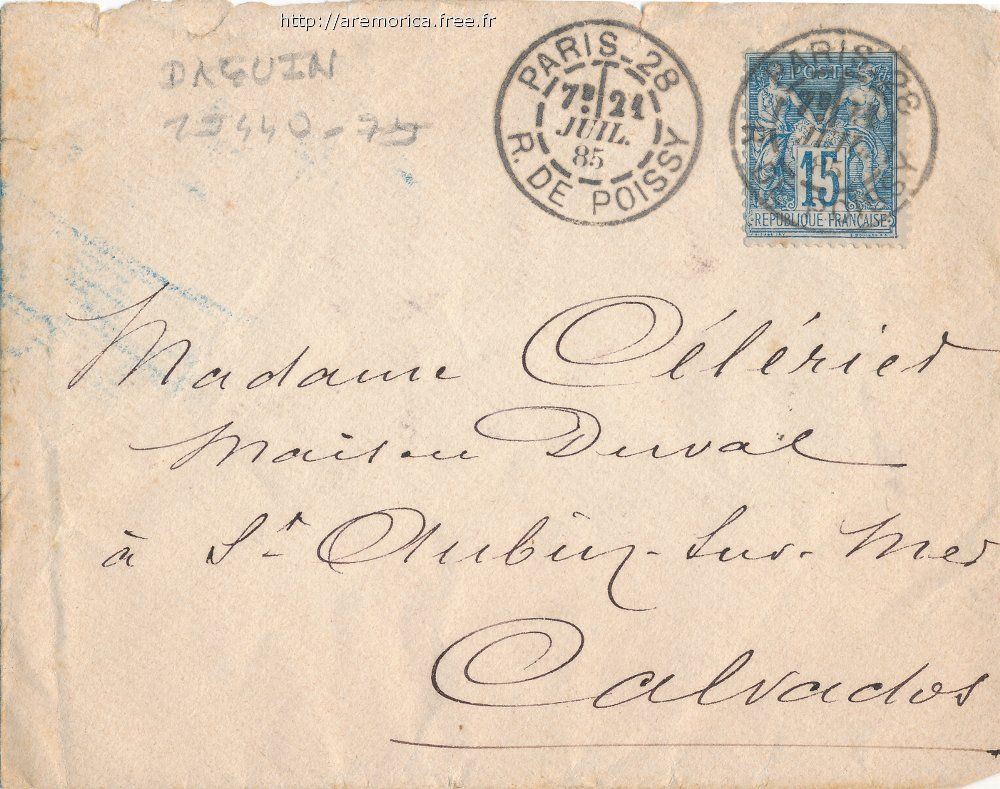 http://aremorica.free.fr
DAGUIN
15440-75
PARIS-28
7E 21
JUIL.
85
R. DE POISSY
PARIS 28
POSTES
15
REPUBLIQUE FRANÇAISE
Madame Célérier
Maison Duval
à St Aubin-sur-Mer
Calvados